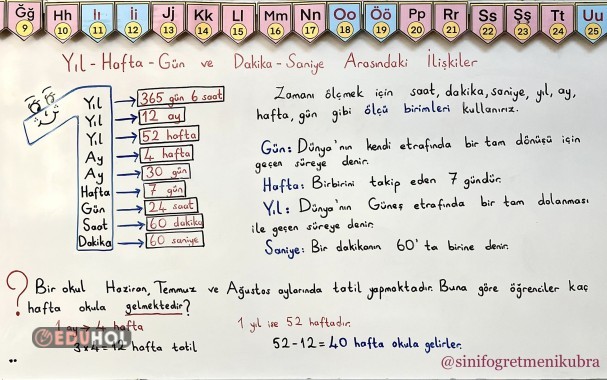 Ğğ Hh Iı İi Jj Kk Ll Mm Nn Oo Öö Pp Rr Ss Şş Tt Uu
9 10 11 12 13 14 15 16 17 18 19 20 21 22 23 24 25
Yıl-Hafta-Gün ve Dakika-Saniye Arasındaki İlişkiler
1
Yıl → 365 gün 6 saat
Yıl → 12 ay
Yıl → 52 hafta
Ay → 4 hafta
Ay → 30 gün
Hafta → 7 gün
Gün → 24 saat
Saat → 60 dakika
Dakika → 60 saniye
Zamanı ölçmek için saat, dakika, saniye, yıl, ay,
hafta, gün gibi ölçü birimleri kullanırız.
Gün: Dünya'nın kendi etrafında bir tam dönüşü için
geçen süreye denir.
Hafta: Birbirini takip eden 7 gündür.
Yıl: Dünya'nın Güneş etrafında bir tam dolanması
ile geçen süreye denir.
Saniye: Bir dakikanın 60'ta birine denir.
? Bir okul Haziran, Temmuz ve Ağustos aylarında tatil yapmaktadır. Buna göre öğrenciler kaç
hafta okula gelmektedir?
1 ay → 4 hafta
3x4=12 hafta tatil
1 yıl ise 52 haftadır.
52-12=40 hafta okula gelirler.
EDUHOL
@sinifogretmenikubra